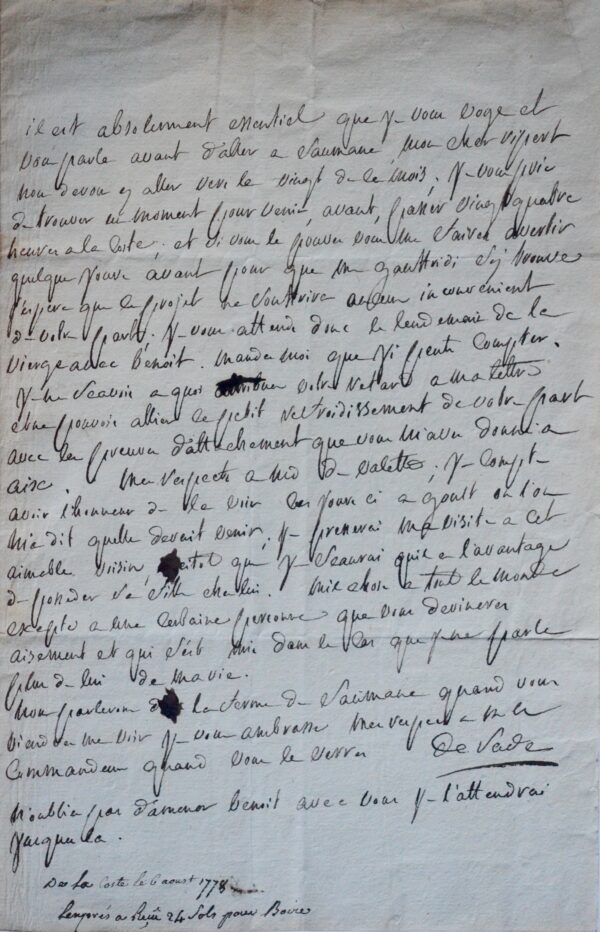 il est absolument essentiel que J-vous voye et
vous parle avant d'aller a Saumane, mon cher ripert
nous devons y aller vers le vingt de ce mois. J-vous prie
de trouver un moment pour venir, avant, passer vingt quatre
heures a la Coste, et si vous le pouvez vous me fairez avertir
quelque jours avant pour que Mr gauffridi s'y trouve
j'espere que ce projet ne souffrira aucun inconvenient
de votre part, J-vous attends donc le lendemain de la
vierge avec Benoit. mandez moi que j'i peut compter.
J-ne scavois a quoi attribuer votre retard a ma lettre
et ne pouvois allier ce petit refroidissement de votre part
avec les preuves d'attachement que vous m'avez donné a
aix. mes respects a md de valette, J-compte
avoir l'honneur de la voir ces jours ci a goult ou l'on
m'a dit quelle devoit venir, J- presserai ma visite a cet
aimable voisin, que J-scaurai quil a l'avantage
de posseder sa fille chez lui. mile chose a tout le monde
excepté a une certaine personne que vous devinerez
aisement et qui s'est mis dans le cas que J-ne parle
plus de lui de ma vie.
nous parlerons de la ferme de Saumane quand vous
viendrez me voir J-vous ambrasse mes respects a Mr le
Commandeur quand vous le verrez De Sade
n'oublié pas d'amener Benoit avec vous J-l'attendrai
jusque la.
De La Coste le 6 aoust 1778
a Reçu 24 Sols pour Boire